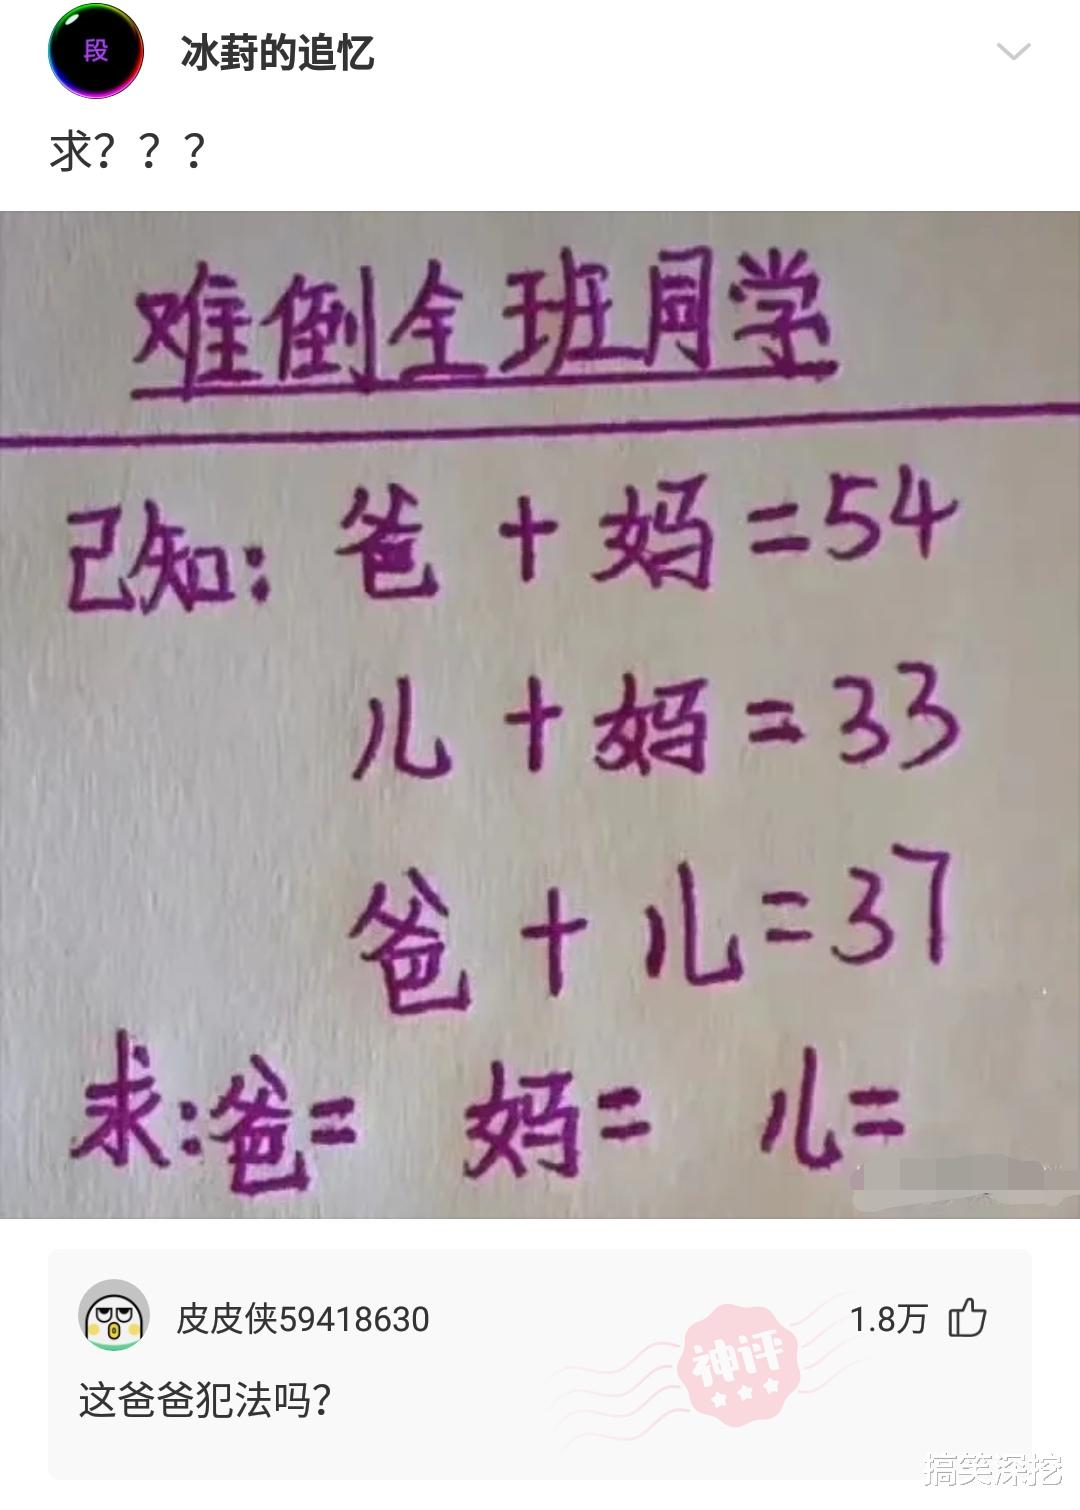 段
冰葑的追忆
求？？？
难倒全班同学
己知：爸 + 妈 = 54
儿 + 妈 = 33
爸 + 儿 = 37
求：爸= 妈= 儿=
皮皮侠59418630
1.8万
神评
这爸爸犯法吗？
搞笑深挖